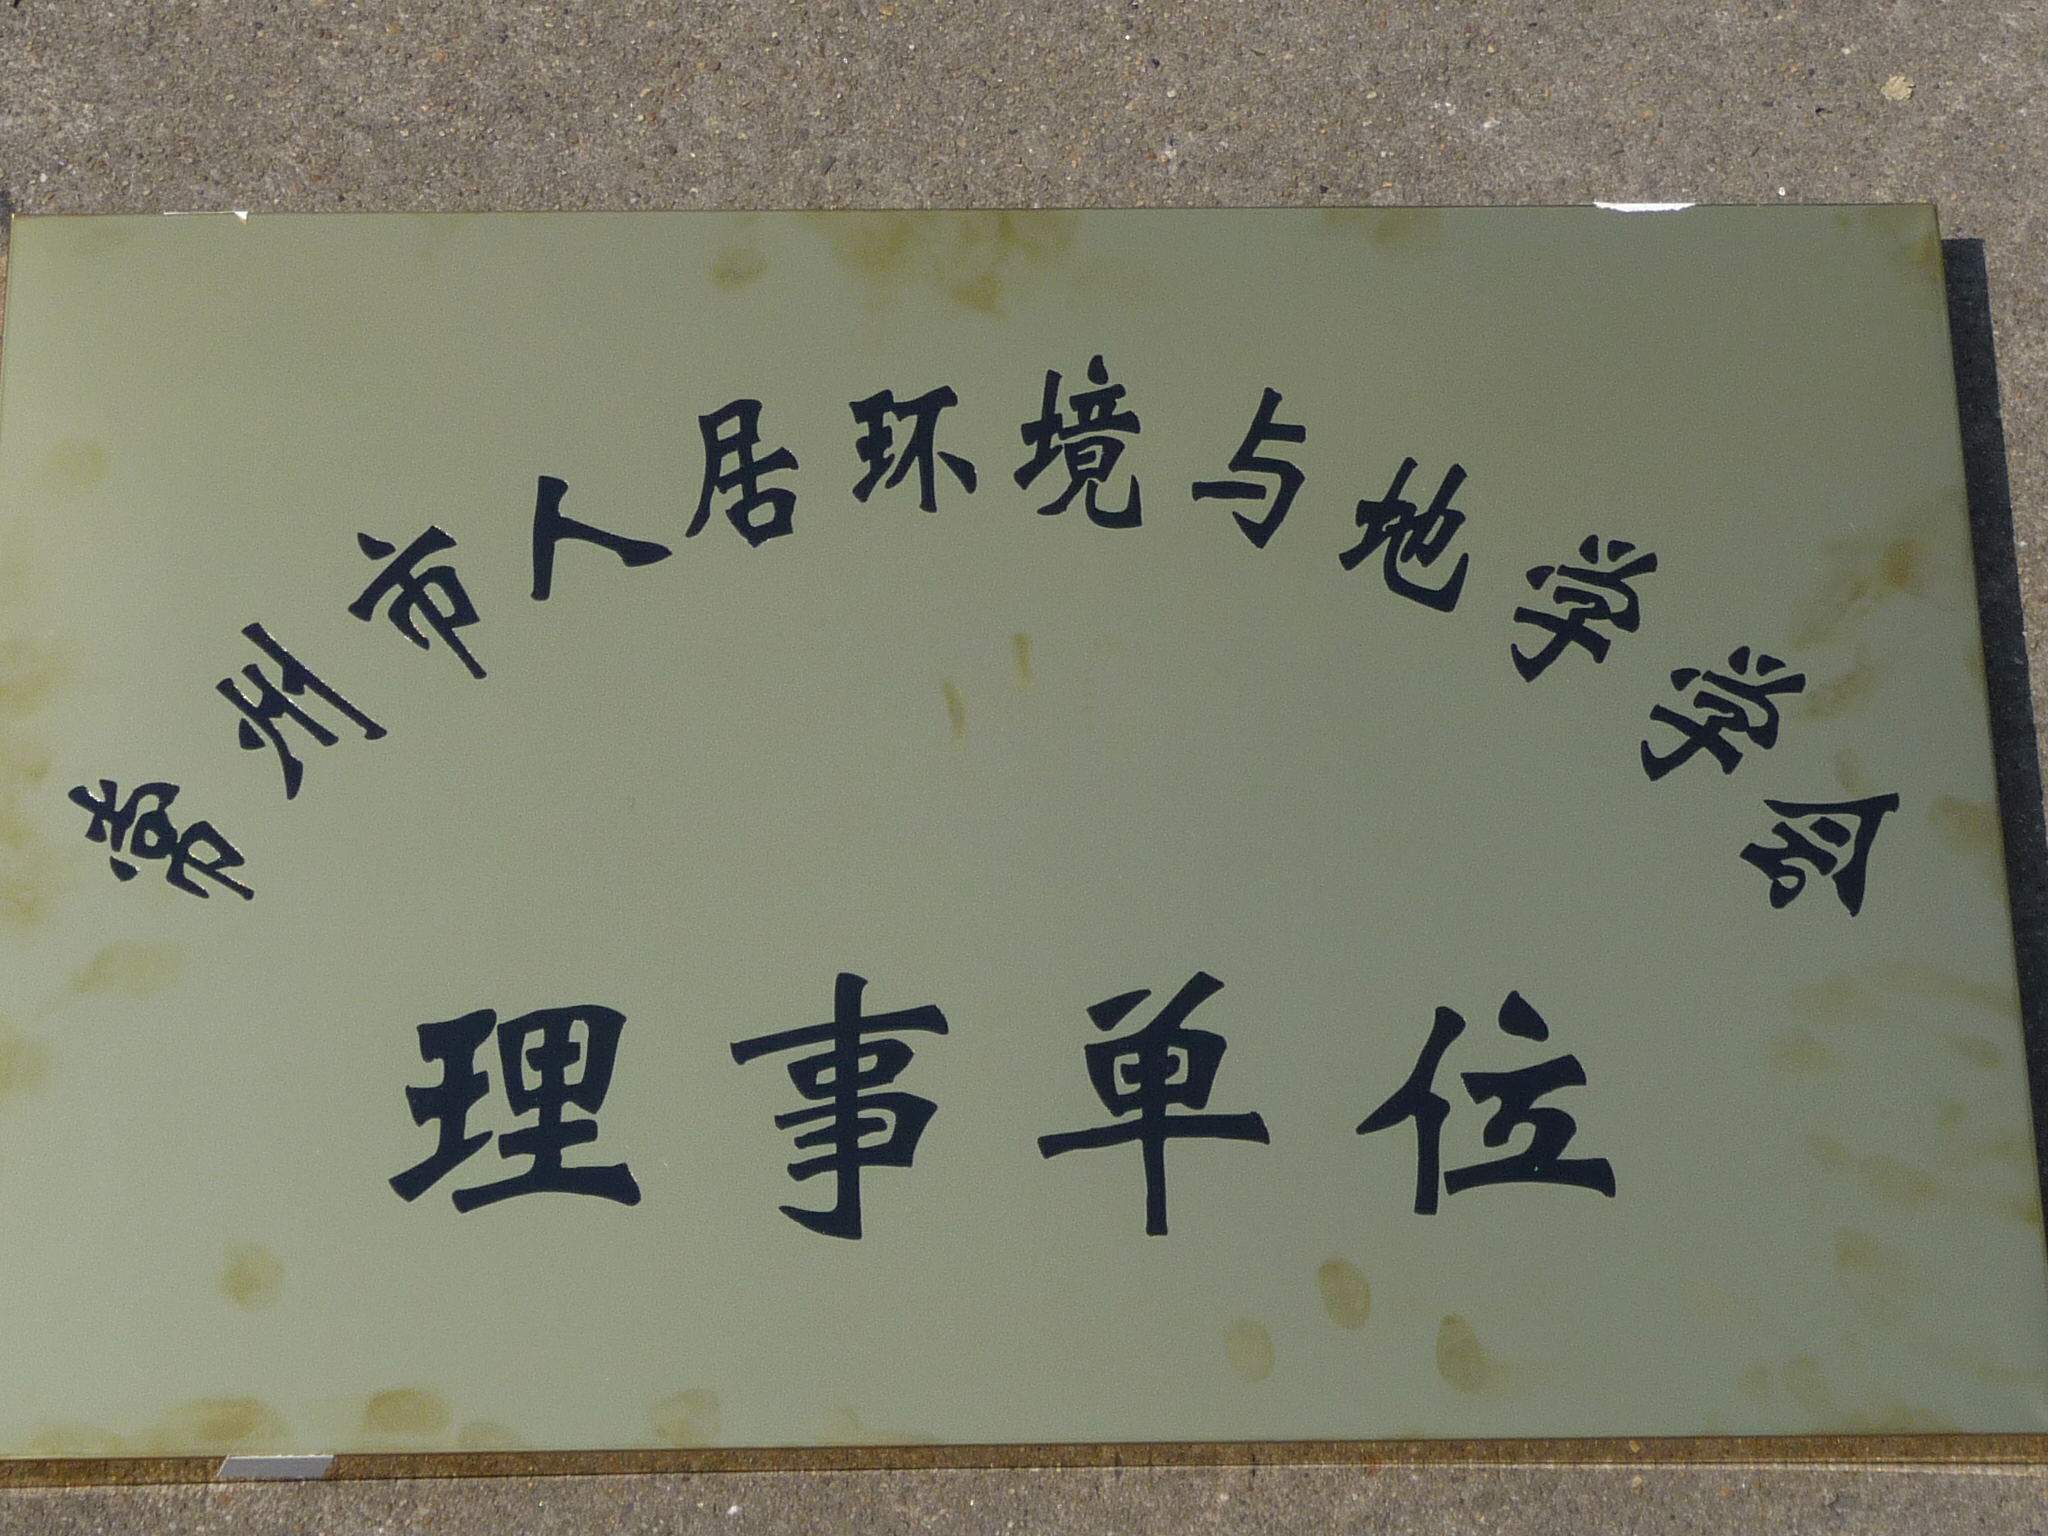 常州市人居环境与地学学会
理事单位